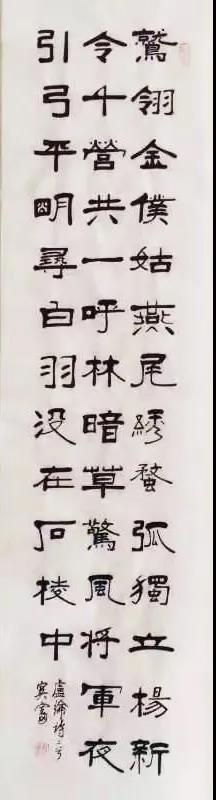 鷲翎金僕姑燕尾綉蝥弧獨立楊新
令千營共一呼林暗草驚風將軍夜
引弓平明尋白羽没在石棱中
盧綸詩二首